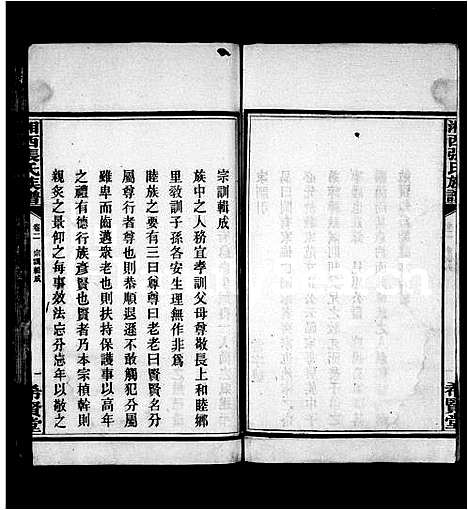 湘西張氏族譜
宗訓輯成
族中之人務宜孝訓父母尊敬長上和睦鄉
里敎訓子孫各安生理無作非爲
睦族之要有三曰尊尊曰老老曰賢賢名分
屬尊行者尊也則恭順退遜不敢觸犯分屬
卑而齒邁衆老也則扶持保護事以高年
之禮有德行族彥賢也賢者乃本宗楨幹則
親炙之景仰之每事效法忘分忘年以敬之
湘西張氏族譜
卷二
宗訓輯成
一
希賢堂
希賢堂